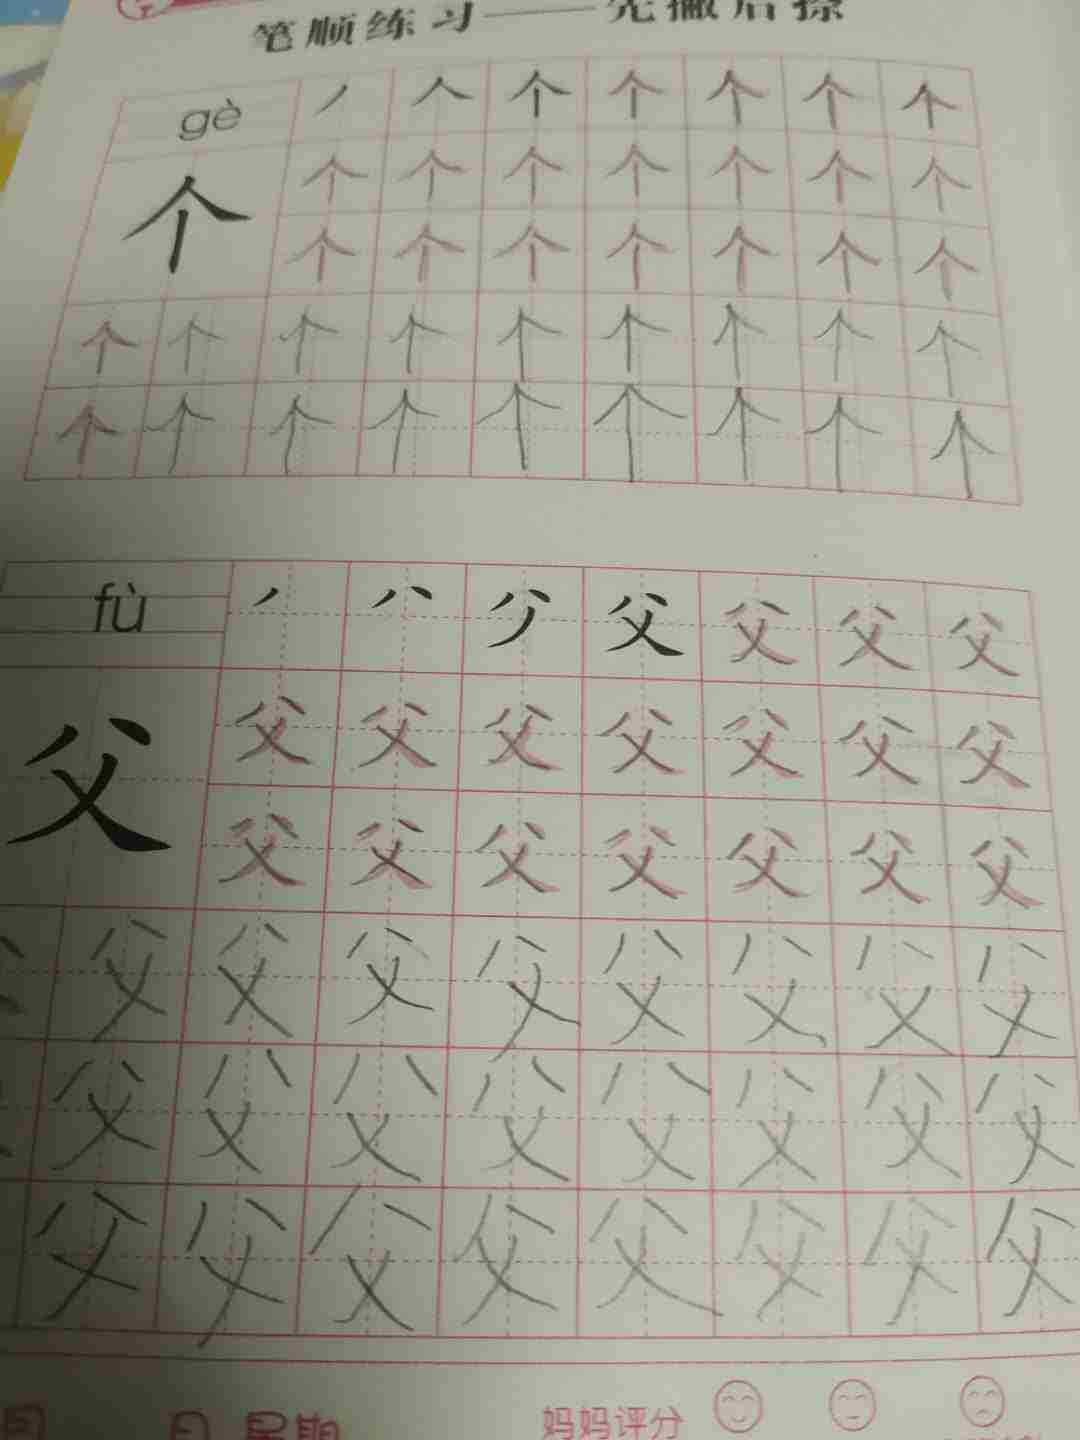 笔顺练习——先撇后捺
gè 丿 人 个 个 个 个 个
个 个 个 个 个 个 个 个
个 个 个 个 个 个 个
个 个 个 个 个 个 个 个 个
个 个 个 个 个 个 个 个 个
fù 丿 八 父 父 父 父
父 父 父 父 父 父 父 父
父 父 父 父 父 父 父
父 父 父 父 父 父 父 父
父 父 父 父 父 父 父 父
父 父 父 父 父 父 父 父
月 日 星期 妈妈评分